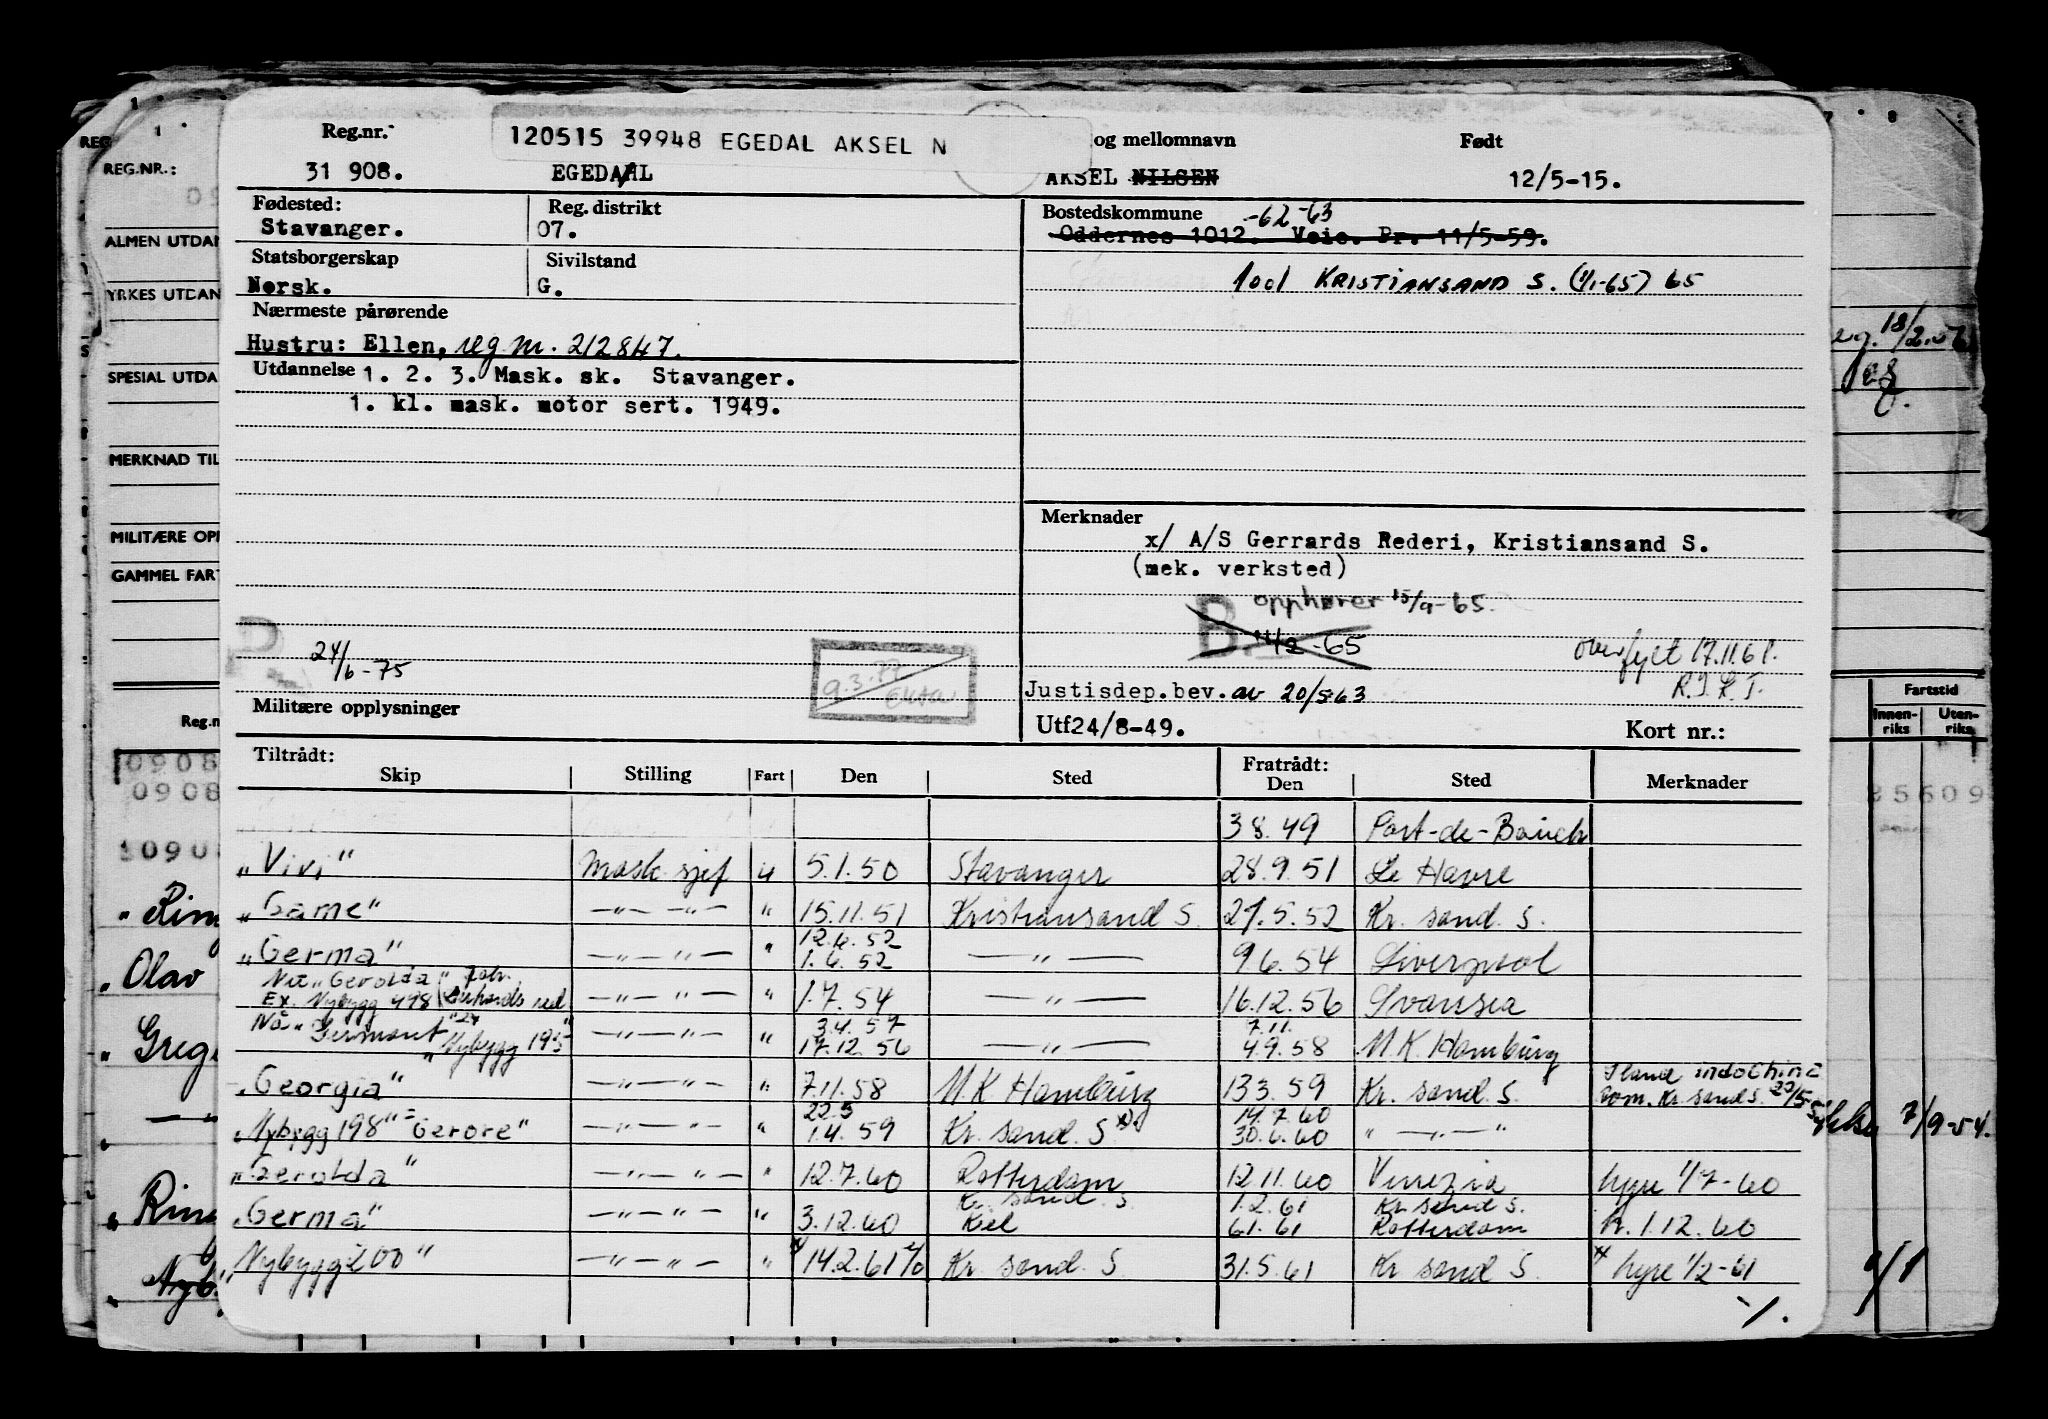 Reg.nr. 120515 39948 EGEDAL AKSEL N og mellomnavn Født
31 908. EGEDAHL AKSEL NILSEN 12/5-15.
Fødested: Reg. distrikt Bostedskommune -62-63
Stavanger. 07. Oddernes 1012. Veie. Pr. 11/5-59.
Statsborgerskap Sivilstand
Norsk. G. 1001 KRISTIANSAND S. (1/1-65) 65
Nærmeste pårørende
Hustru: Ellen, reg nr. 212847.
Utdannelse 1. 2. 3. Mask. sk. Stavanger.
1. kl. mask. motor sert. 1949.
Merknader
x/ A/S Gerrards Rederi, Kristiansand S.
(mek. verksted)
B opphører 15/9-65.
11/2-65
24/6-75
9.3.77
overfylt 17.11.61.
Justisdep.bev. av 20/5-63
Militære opplysninger Utf 24/8-49. Kort nr.:
Tiltrådt: Fratrådt:
Skip Stilling Fart Den Sted Den Sted Merknader
3.8.49 Port-de-Bouch
"Vivi" Mask. sjef u 5.1.50 Stavanger 28.9.51 Le Havre
"Game" —"— —"— " 15.11.51 Kristiansand S. 27.5.52 Kr. sand. S.
12.6.52
"Germa" —"— —"— " 1.6.52 —"— 9.6.54 Liverpool
"Gerolda"
Ex. Nybygg 498 —"— —"— " 1.7.54 —"— 16.12.56 Swansea
Nå "Germont" 3.4.57 7.11.
"Nybygg 195" —"— —"— " 17.12.56 —"— 4.9.58 M.K. Hamburg
"Georgia" —"— —"— " 7.11.58 M.K. Hamburg 13.3.59 Kr. sand. S. Iland indochina
22.5 14.7.60 Kr. sand S. 22/5-59
"Nybygg 198" = "Gerore" —"— —"— " 1.4.59 Kr. sand. S x) 30.6.60 "—"—"
"Gerolda" —"— —"— " 12.7.60 Rotterdam 12.11.60 Venezia hyre 1/7-60
Kr. sand. S 1.2.61 Kr. sand S.
"Germa" —"— —"— " 3.12.60 Kiel 6.1.61 Rotterdam h. 1.12.60
"Nybygg 200" —"— —"— " x/ 14.2.61 Kr. sand. S 31.5.61 Kr sand S. x hyre 1/2-61
REG.NR.:
ALMEN UTDAN
YRKES UTDAN
SPESIAL UTDA
MERKNAD TIL
MILITÆRE OPP
GAMMEL FART
Reg.n
0908
0908
10908
Olav
7/9-54.
Fartstid
Innen-
riks
Uten-
riks
85609